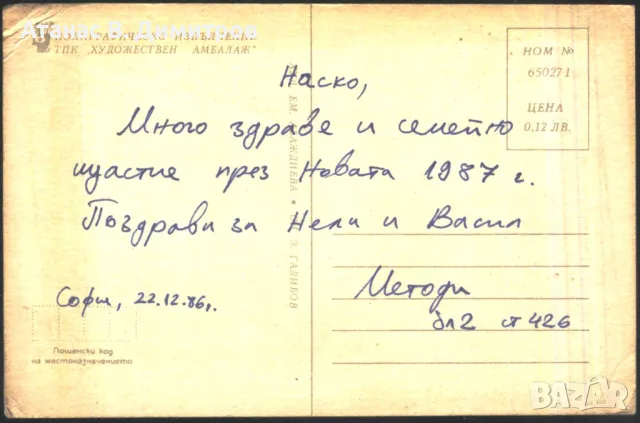 ПОЛИГРАФИЧЕСКО ИЗПЪЛНЕНИЕ
ТПК „ХУДОЖЕСТВЕН АМБАЛАЖ“
НОМ №
650271
ЦЕНА
0,12 ЛВ.
Наско,
Много здраве и семейно
щастие през Новата 1987 г.
Поздрави за Нели и Васил
Методи
бл2 ст 426
София, 22.12.86г.
Пощенски код
на местоназначението
BAZAR